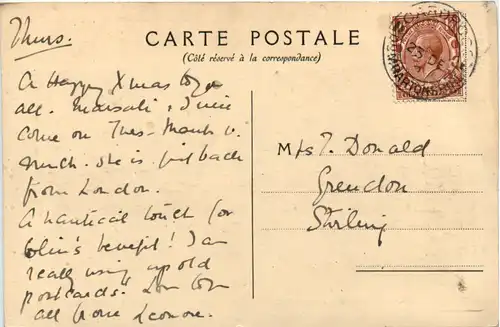 Thurs.
CARTE POSTALE
(Côté réservé à la correspondance)
A Happy Xmas to you
all. Marsali & I will
come on Tues - Thank u.
much. She is just back
from London.
A nautical touch (for
Colin's benefit! I am
really using up old
postcards! Love to you
all from Leonore.
Mrs T. Donald
Grendon
Stirling
25 DE